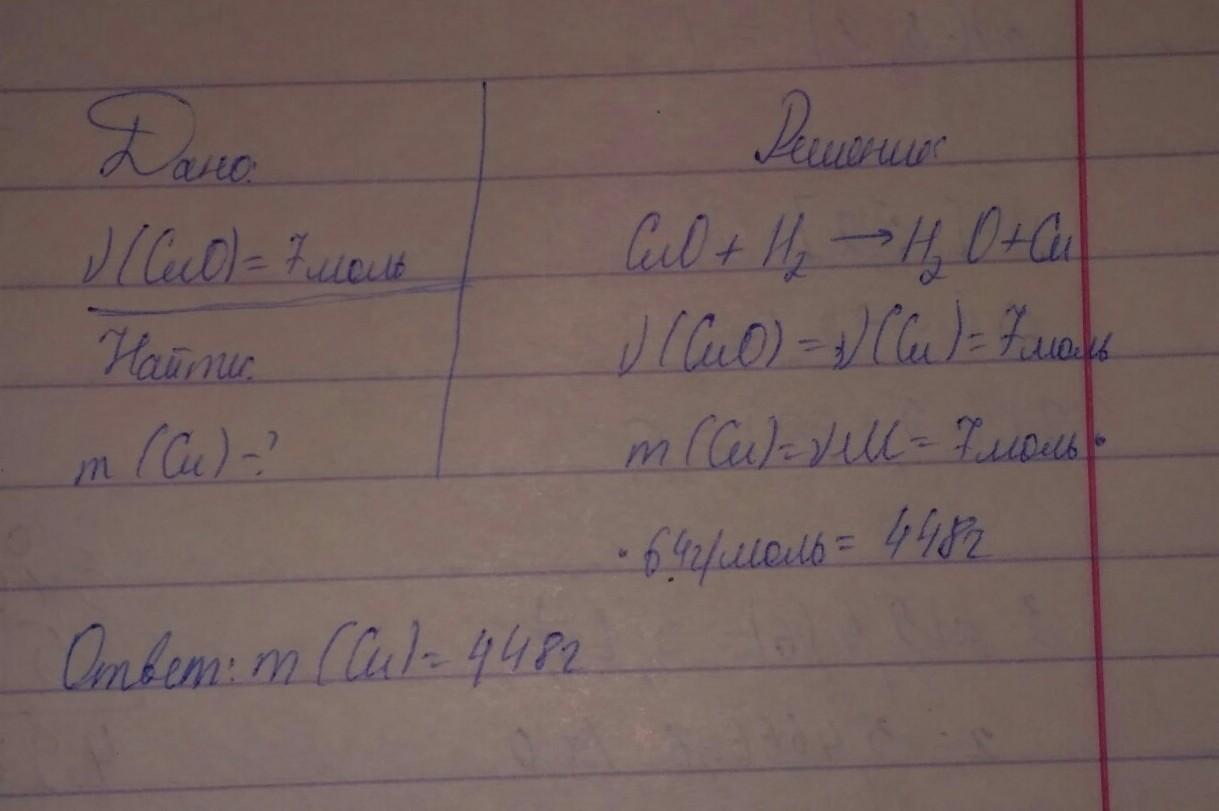 Дано:
ν(CuO) = 7 моль
Найти:
m (Cu) - ?
Решение:
CuO + H₂ → H₂O + Cu
ν(CuO) = ν(Cu) = 7 моль
m (Cu) = νM = 7 моль ·
· 64 г/моль = 448 г
Ответ: m (Cu) = 448 г